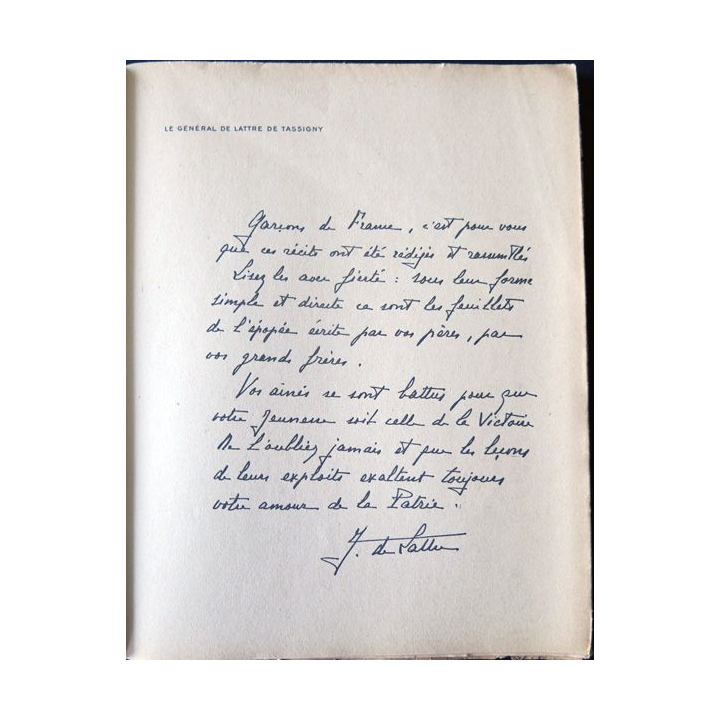 LE GÉNÉRAL DE LATTRE DE TASSIGNY
Garçons de France, c'est pour vous
que ces récits ont été rédigés et rassemblés
Lisez les avec fierté : sous leur forme
simple et directe ce sont les feuillets
de l'épopée écrite par vos pères, par
vos grands frères.
Vos aînés se sont battus pour que
votre Jeunesse soit celle de la Victoire
Ne l'oubliez jamais et que les leçons
de leurs exploits exaltent toujours
votre amour de la Patrie.
J. de Lattre